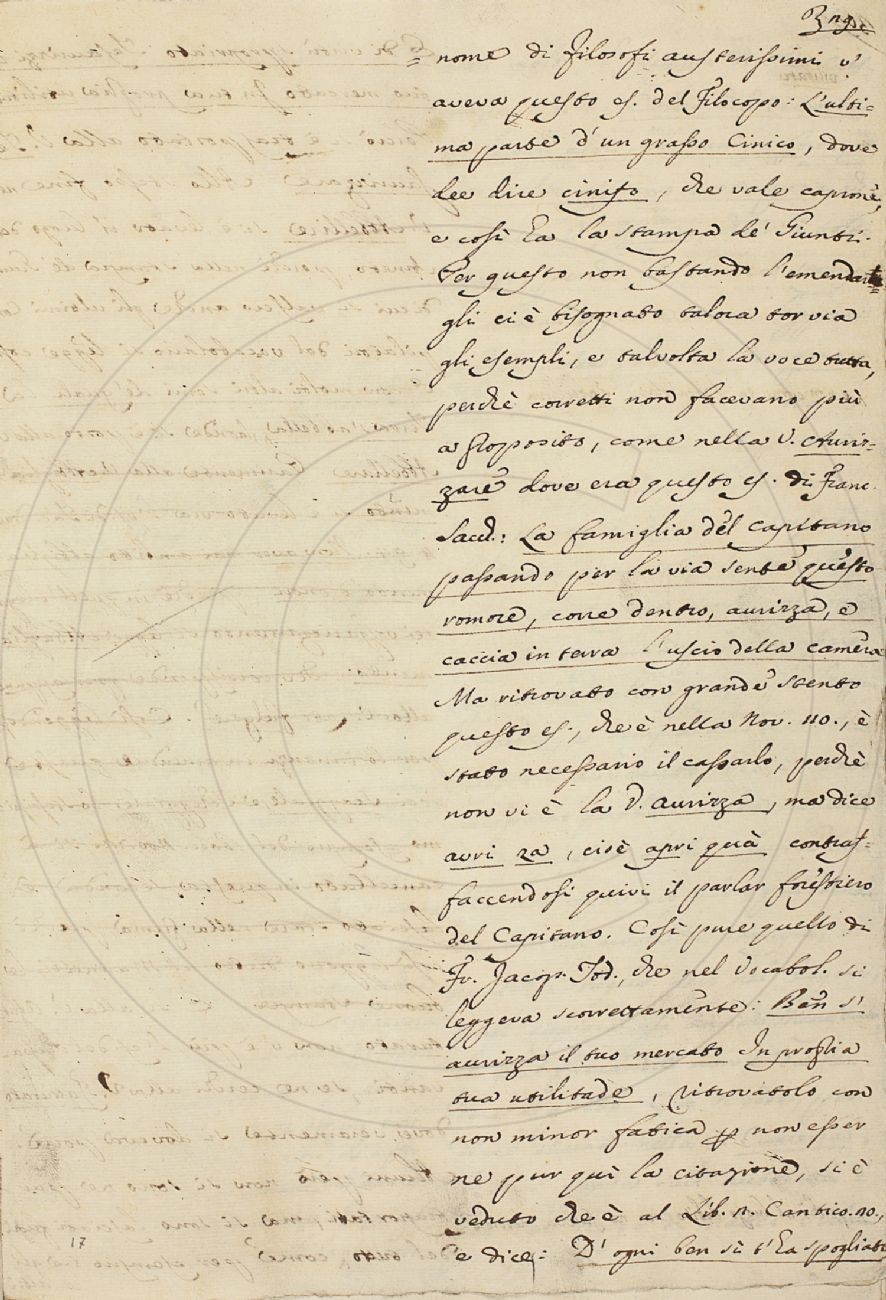 = nome di Filosofi austerissimi v'
aveva questo es. del Filocopo: L'ulti=
ma parte d'un grasso Cinico, dove
dee dire cinifo, che vale caprone,
e così ha la stampa de' Giunti.
Per questo non bastando l'emendar=
gli ci è bisognato talora tor via
gli esempli, e talvolta la voce tutta,
perchè corretti non facevano più
a proposito, come nella V. Auriz=
zare dove era questo es. di Franc.
Sacch.: La famiglia del Capitano
passando per la via sente questo
romore, corre dentro, aurizza, e
caccia in terra l'uscio della camera
Ma ritrovato con grande stento
questo es., che è nella Nov. 110., è
stato necessario il cassarlo, perchè
non vi è la V. aurizza, ma dice
avri za, cioè apri quà contraf=
faccendosi quivi il parlar forestiero
del Capitano. Così pure quello di
Fr. Jacop. Tod., che nel Vocabol. si
leggeva scorrettamente: Ben s'
aurizza il tuo mercato In propria
tua utilitade, ritrovatolo con
non minor fatica p non esser
ne pur quì la citazione, si è
veduto che è al Lib. 2. Cantico. 20.,
e dice: D'ogni ben sì t'ha spogliato
17